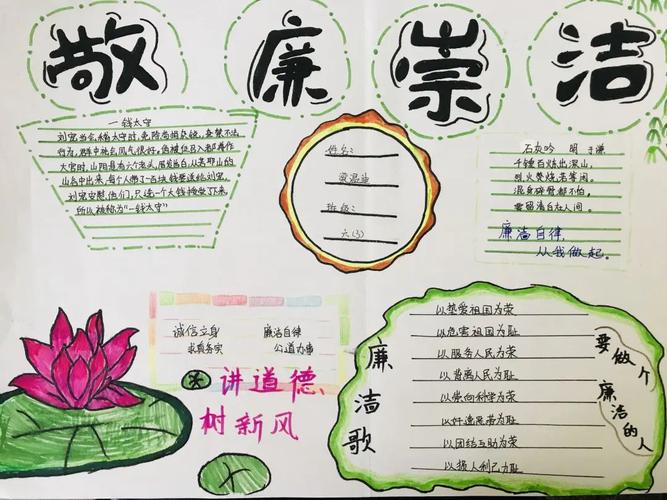 敬廉崇洁
一钱太守
刘宠当会稽太守时,免除苛捐杂税,查禁不法
行为,郡中社会风气很好,他被征召入都再作
大官时,山阴县有六个老头,眉发皓白,从若耶山的
山谷中出来,每个人带了一百块钱要送给刘宠,
刘宠安慰他们,只选一个大钱接受了下来,
所以被称为“一钱太守”
姓名:
班级:
六(3)
石灰吟 明 于谦
千锤百炼出深山,
烈火焚烧若等闲。
混身碎骨都不怕,
要留清白在人间。
廉洁自律,
从我做起。
诚信立身 廉洁自律
求真务实 公道办事
讲道德
树新风
廉洁歌
以热爱祖国为荣
以危害祖国为耻
以服务人民为荣
以背离人民为耻
以崇尚科学为荣
以好逸恶劳为耻
以团结互助为荣
以损人利己为耻
要做个
廉洁的人